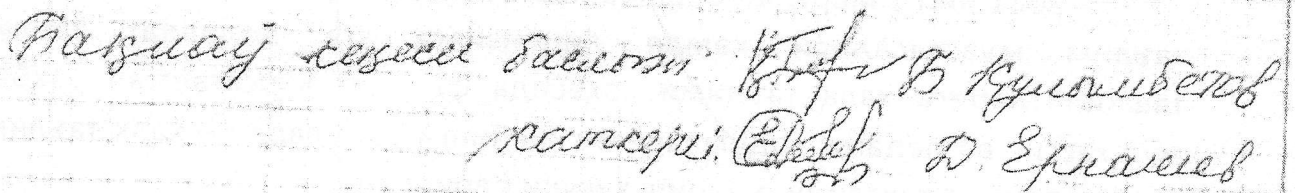 Бақлаў кеңеси баслығы Б Қулымбетов
хаткери. Д. Ернашев